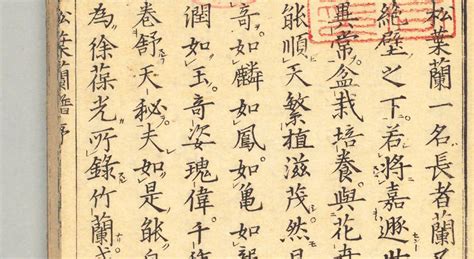 松葉蘭一名長者蘭又
絶壁之下若將嘉遯
異常盆栽培養與花
能順天繁植滋茂然
奇如麟如鳳如亀如
潤如玉奇姿瑰偉千
卷舒天秘夫如是能自
為徐葆光所錄竹蘭
松葉蘭譜序